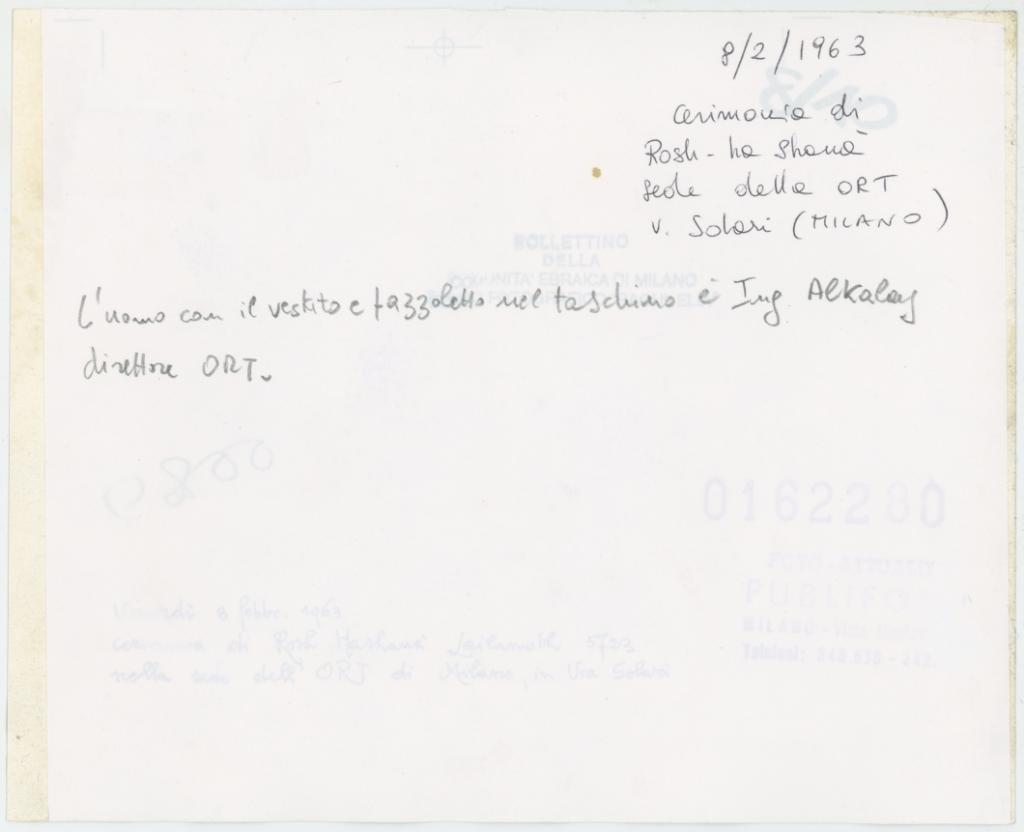 8/2/1963
Cerimonia di
Rosh-ha Shanà
sede della ORT
v. Solari (MILANO)
BOLLETTINO
DELLA
COMUNITA' EBRAICA DI MILANO
L'uomo con il vestito e fazzoletto nel taschino è Ing Alkalay
direttore ORT.
0800
0162280
FOTO-ATTUALIT
PUBLIFO
MILANO - 
Telefoni: 348.630 - 342.
Venerdì 8 febbr. 1963
cerimonia di Rosh Hashanà Lailanoth 5723
nella sede dell'ORT di Milano, in Via Solari